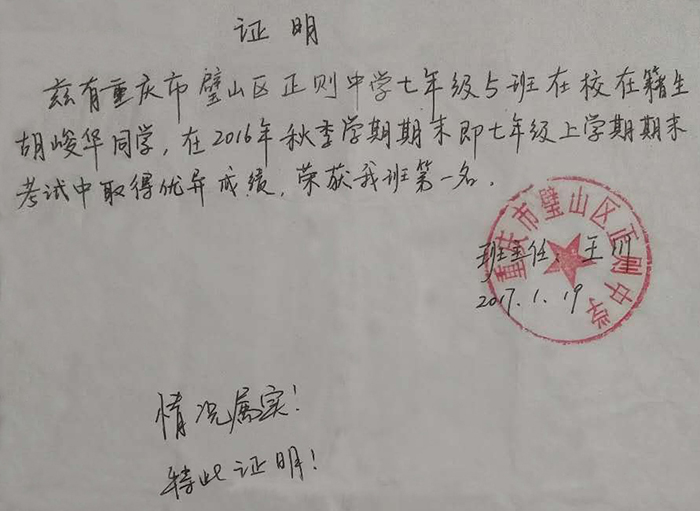 证明
兹有重庆市璧山区正则中学七年级5班在校在籍生
胡峻华同学，在2016年秋季学期期末即七年级上学期期末
考试中取得优异成绩，荣获我班第一名。
重庆市璧山区正则中学
班主任：王川
2017.1.19
情况属实！
特此证明！